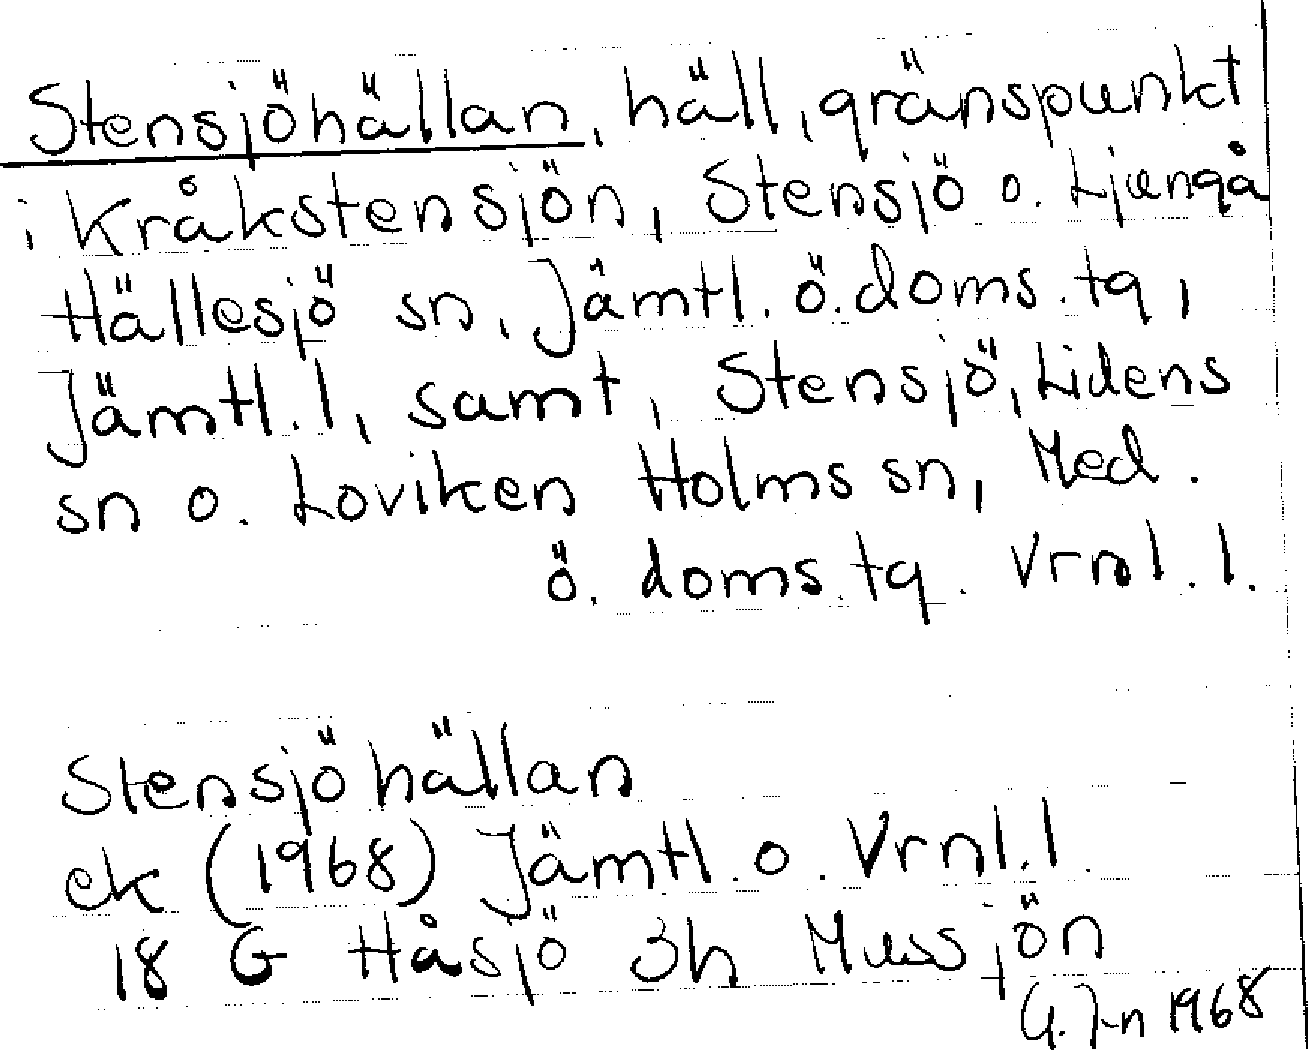 Stensjöhällan, häll, gränspunkt
i Kråkstensjön, Stensjö o. Ljungå
Hällesjö sn, Jämtl. ö. doms. tg,
Jämtl. l, samt, Stensjö, Lidens
sn o. Loviken Holms sn, Med.
ö. doms. tg. Vrnl. l.
Stensjöhällan
ek (1968) Jämtl. o. Vrnl. l.
18 G Håsjö 3h Mussjön
G. J-n 1968